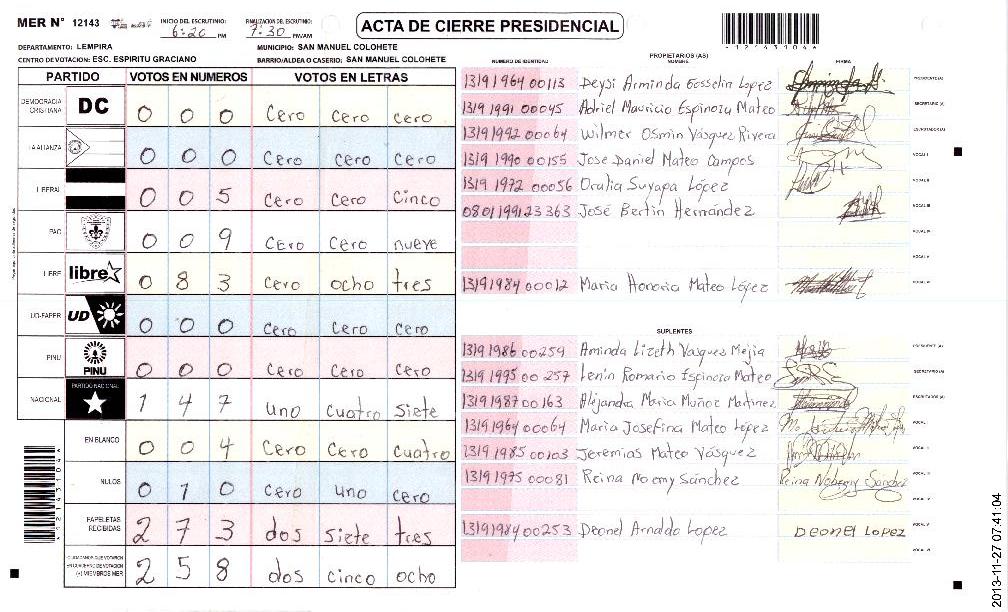 MER N° 12143
INICIO DEL ESCRUTINIO: 6:20 PM
FINALIZACION DEL ESCRUTINIO: 7:30 PM/AM
ACTA DE CIERRE PRESIDENCIAL
*12143104*
DEPARTAMENTO: LEMPIRA
MUNICIPIO: SAN MANUEL COLOHETE
CENTRO DE VOTACION: ESC. ESPIRITU GRACIANO
BARRIO/ALDEA O CASERIO: SAN MANUEL COLOHETE
PARTIDO VOTOS EN NUMEROS VOTOS EN LETRAS
DEMOCRACIA CRISTIANA DC 0 0 0 Cero Cero cero
LA ALIANZA 0 0 0 Cero Cero Cero
LIBERAL 0 0 5 Cero Cero Cinco
PAC 0 0 9 Cero Cero nueve
LIBRE libre 0 8 3 Cero ocho tres
UD-FAPER UD 0 0 0 Cero Cero Cero
PINU PINU 0 0 0 Cero Cero Cero
NACIONAL PARTIDO NACIONAL 1 4 7 uno cuatro siete
EN BLANCO 0 0 4 Cero Cero cuatro
NULOS 0 1 0 Cero uno cero
PAPELETAS RECIBIDAS 2 7 3 dos siete tres
CIUDADANOS QUE VOTARON EN CUADERNO DE VOTACION (+) MIEMBROS MER 2 5 8 dos cinco ocho
PROPIETARIOS (AS)
NUMERO DE IDENTIDAD NOMBRE FIRMA
1319 1964 00113 Deysi Arminda Gosselin Lopez PRESIDENTE (A)
1319 1991 00045 Adriel Mauricio Espinoza Mateo SECRETARIO (A)
1319 1992 00064 Wilmer Osmin Vásquez Rivera ESCRUTADOR (A)
1319 1990 00155 Jose Daniel Mateo Campos VOCAL I
1319 1972 00056 Oralia Suyapa López VOCAL II
0801 1991 23363 José Bertin Hernández VOCAL III
VOCAL IV
VOCAL V
1319 1984 00012 Maria Honoria Mateo López VOCAL VI
SUPLENTES
1319 1986 00259 Aminda Lizeth Vasquez Mejia PRESIDENTE (A)
1319 1995 00257 Lenin Romario Espinoza Mateo SECRETARIO (A)
1319 1987 00163 Alejandra Maria Muñoz Martinez ESCRUTADOR (A)
1319 1964 00064 Maria Josefina Mateo López VOCAL I
1319 1985 00103 Jeremias Mateo Vásquez VOCAL II
1319 1975 00081 Reina Noemy Sánchez Reina Nohemy Sánchez VOCAL III
VOCAL IV
1319 1984 00253 Deonel Arnaldo Lopez DEONEL LOPEZ VOCAL V
VOCAL VI
2013-11-27 07:41:04